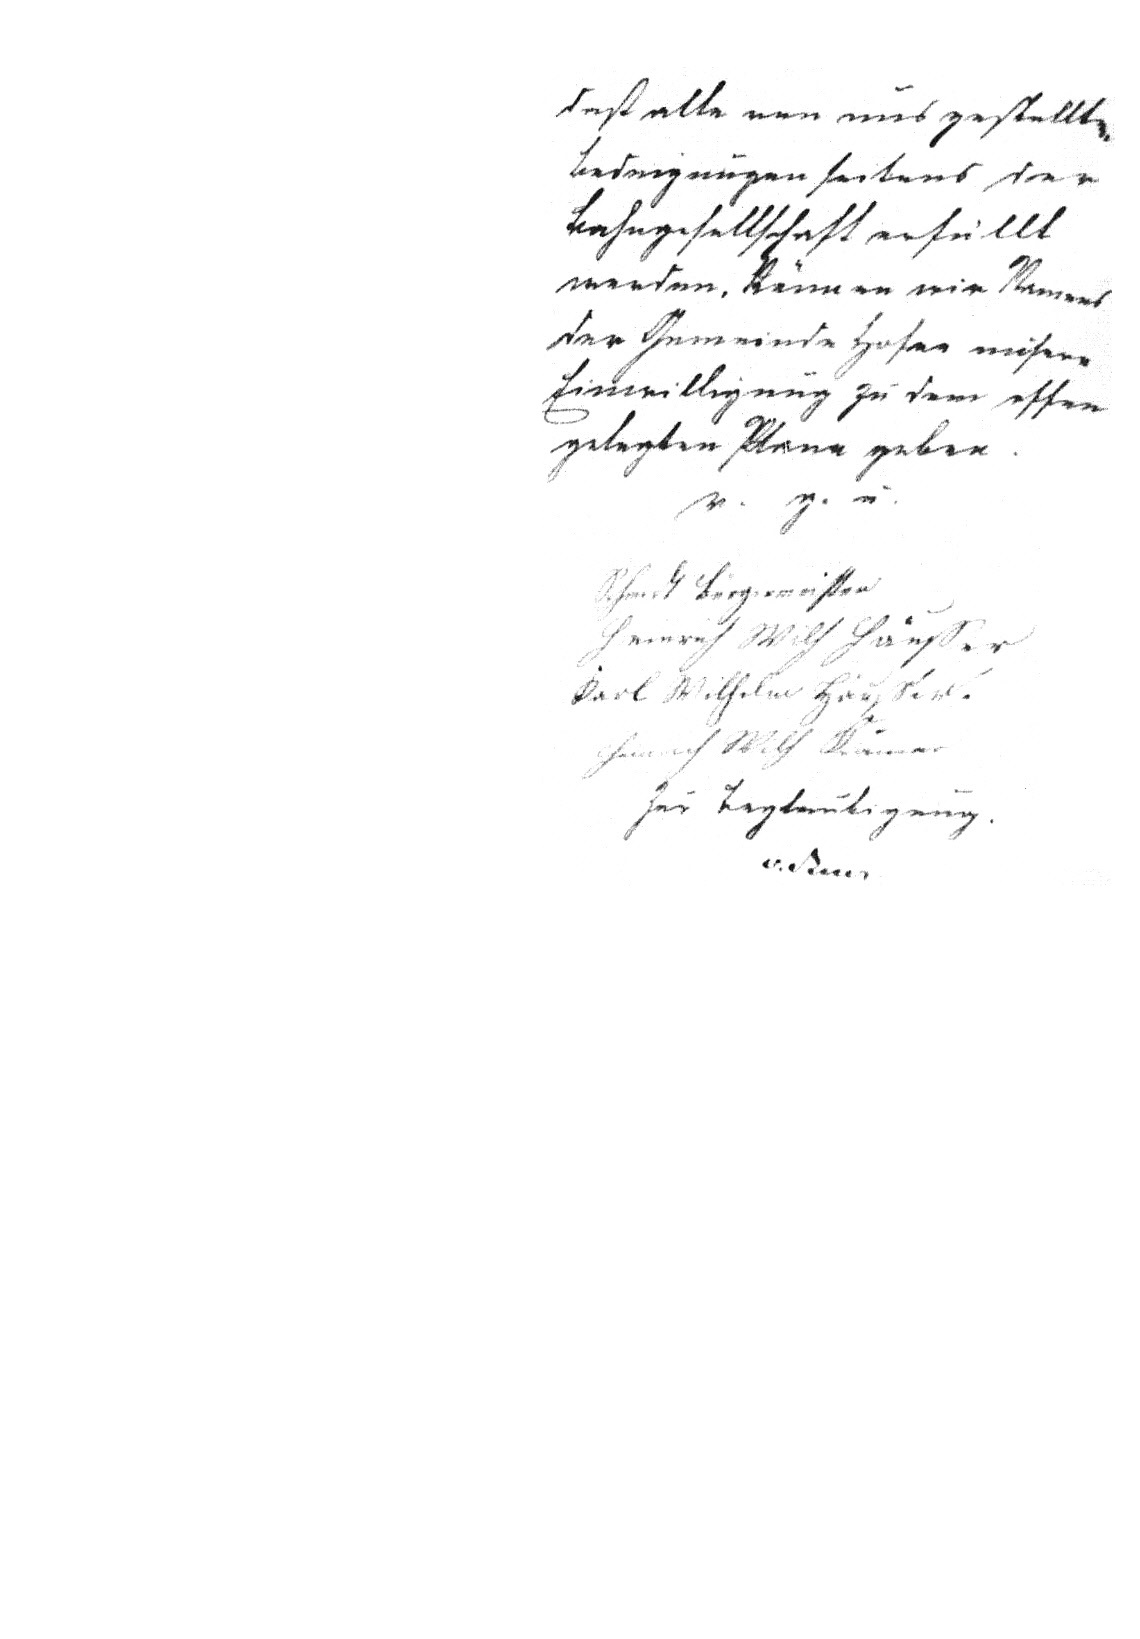 daß alle von uns gestellten
Bedingungen seitens der
Bahngesellschaft erfüllt
werden, können wir Namens
der Gemeinde Hofen unsere
Einwilligung zu dem offen
gelegten Plane geben.
v. g. u.
Schmidt Bürgermeister
Heinrich Wilh Häusser
Karl Wilhelm Häusser.
Heinrich Wilh Krämer
Zur Beglaubigung.